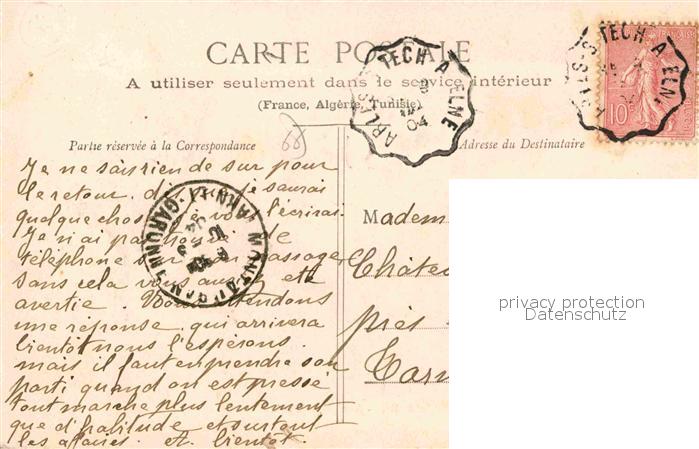 CARTE POSTALE
A utiliser seulement dans le service intérieur
(France, Algérie, Tunisie)
ARLES-S-TECH A ELNE
04
10
68
Partie réservée à la Correspondance
Adresse du Destinataire
Je ne sais rien de sur pour
le retour. dès que je saurai
quelque chose je vous l'écrirai.
Je n'ai pas de
téléphone sur passage
sans cela vous auriez été
avertie. Nous attendons
une réponse qui arrivera
bientôt nous l'espérons.
mais il faut en prendre son
parti quand on est pressé
tout marche plus lentement
que d'habitude et surtout
les affaires. et bientôt.
MONTAUBAN
TARN-ET-GARONNE
Madame
Château
près
Tarn
privacy protection
Datenschutz